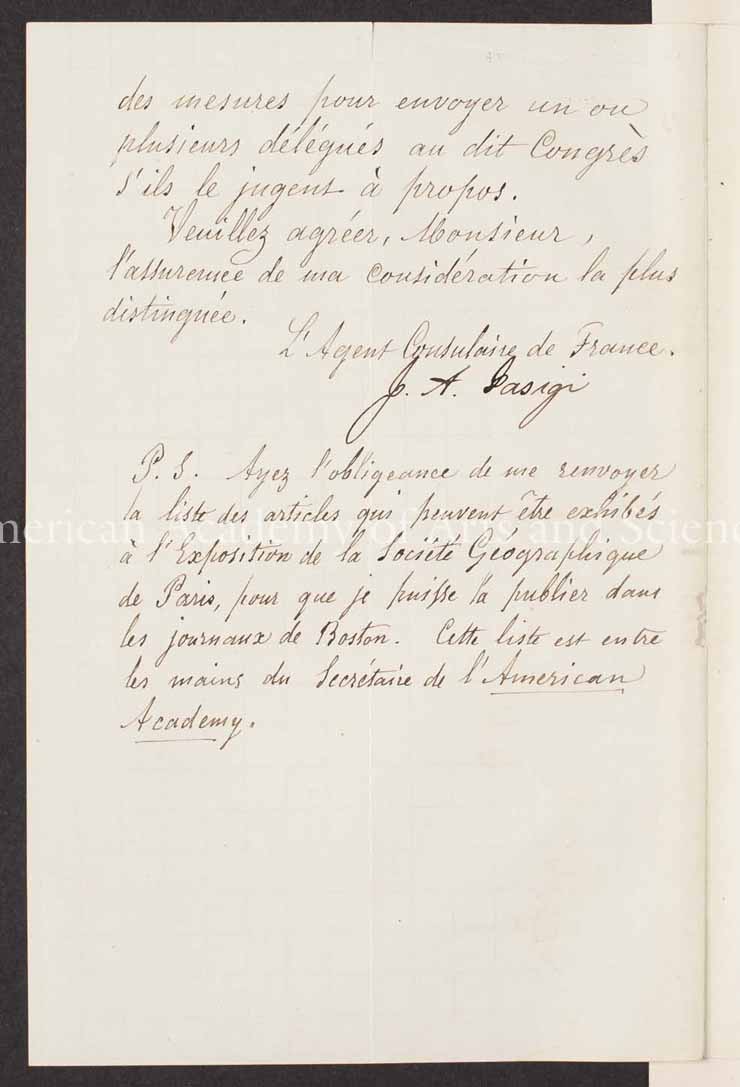 des mesures pour envoyer un ou
plusieurs délégués au dit Congrès
s'ils le jugent à propos.
Veuillez agréer, Monsieur,
l'assurence de ma considération la plus
distinguée.
L'Agent Consulaire de France.
J. A. Iasigi
P. S. Ayez l'obligeance de me renvoyer
la liste des articles qui peuvent être exhibés
American Academy of Arts and Scienc
à l'Exposition de la Société Géographique
de Paris, pour que je puisse la publier dans
les journaux de Boston. Cette liste est entre
les mains du Secrétaire de l'American
Academy.